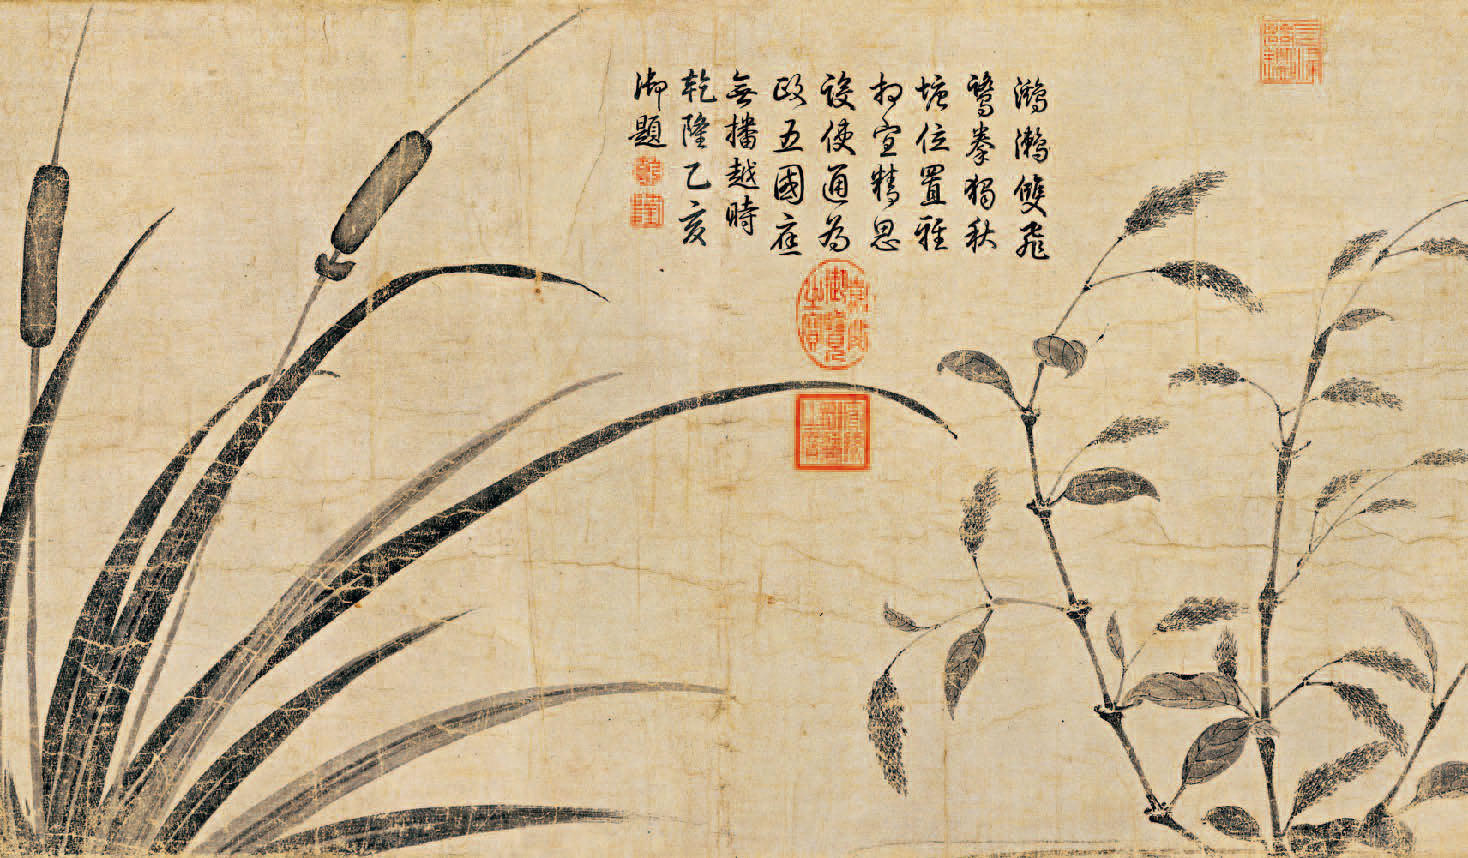 鸂鶒雙飛
鷺拳獨秋
塘位置雅
相宜精思
設使通為
政五國應
無播越時
乾隆乙亥
御題
乾
隆